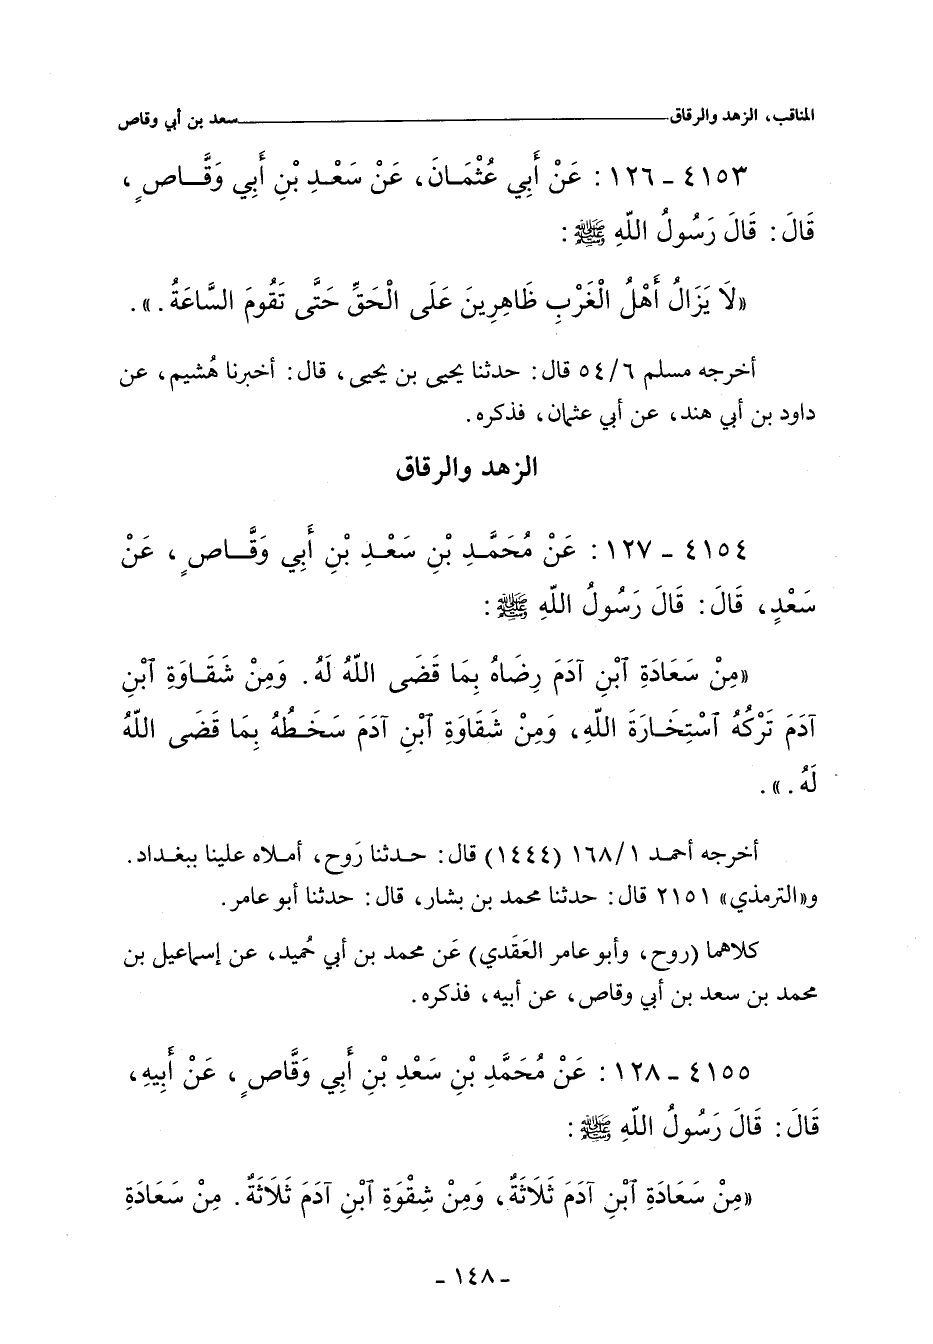 المناقب، الزهد والرقاق ــــــــــ سعد بن أبي وقاص
٤١٥٣ ـ ١٢٦ : عَنْ أَبِي عُثْمَـانَ، عَنْ سَعْـدِ بْنِ أَبِي وَقَّـاصٍ،
قَالَ: قَالَ رَسُولُ اللّهِ ﷺ:
«لَا يَزَالُ أَهْلُ الْغَرْبِ ظَاهِرِينَ عَلَى الْحَقِّ حَتَّى تَقُومَ السَّاعَةُ.».
أخرجه مسلم ٥٤/٦ قال: حدثنا يحيى بن يحيى، قال: أخبرنا هُشيم، عن
داود بن أبي هند، عن أبي عثمان، فذكره.
الزهد والرقاق
٤١٥٤ ـ ١٢٧ : عَنْ مُحَمَّـدِ بْنِ سَعْـدِ بْنِ أَبِي وَقَّـاصٍ، عَنْ
سَعْدٍ، قَالَ: قَالَ رَسُولُ اللّهِ ﷺ:
«مِنْ سَعَادَةِ ٱبْنِ آدَمَ رِضَاهُ بِمَا قَضَى اللّهُ لَهُ. وَمِنْ شَقَـاوَةِ ٱبْنِ
آدَمَ تَرْكُهُ ٱسْتِخَـارَةَ اللّهِ، وَمِنْ شَقَاوَةِ ٱبْنِ آدَمَ سَخَـطُهُ بِمَا قَضَى اللّهُ
لَهُ.».
أخرجه أحمد ١٦٨/١ (١٤٤٤) قال: حـدثنا رَوح، أمـلاه علينا ببغـداد.
و«الترمذي» ٢١٥١ قال: حدثنا محمد بن بشار، قال: حدثنا أبو عامر.
كلاهما (روح، وأبو عامر العَقَدي) عَن محمد بن أبي حُميد، عن إسماعيل بن
محمد بن سعد بن أبي وقاص، عن أبيه، فذكره.
٤١٥٥ ـ ١٢٨ : عَنْ مُحَمَّدِ بْنِ سَعْدِ بْنِ أَبِي وَقَّاصٍ، عَنْ أَبِيهِ،
قَالَ: قَالَ رَسُولُ اللّهِ ﷺ:
«مِنْ سَعَادَةِ ٱبْنِ آدَمَ ثَلَاثَةٌ، وَمِنْ شِقْوَةِ ٱبْنِ آدَمَ ثَلَاثَةٌ. مِنْ سَعَادَةِ
ـ ١٤٨ ـ